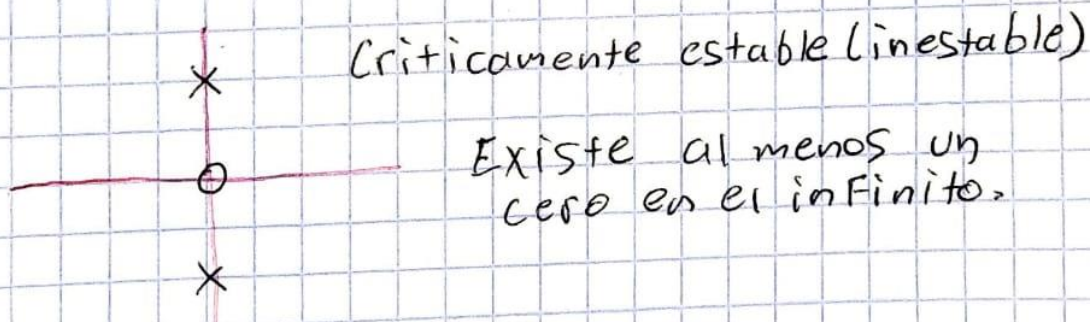 Criticamente estable (inestable)
Existe al menos un
cero en el infinito.